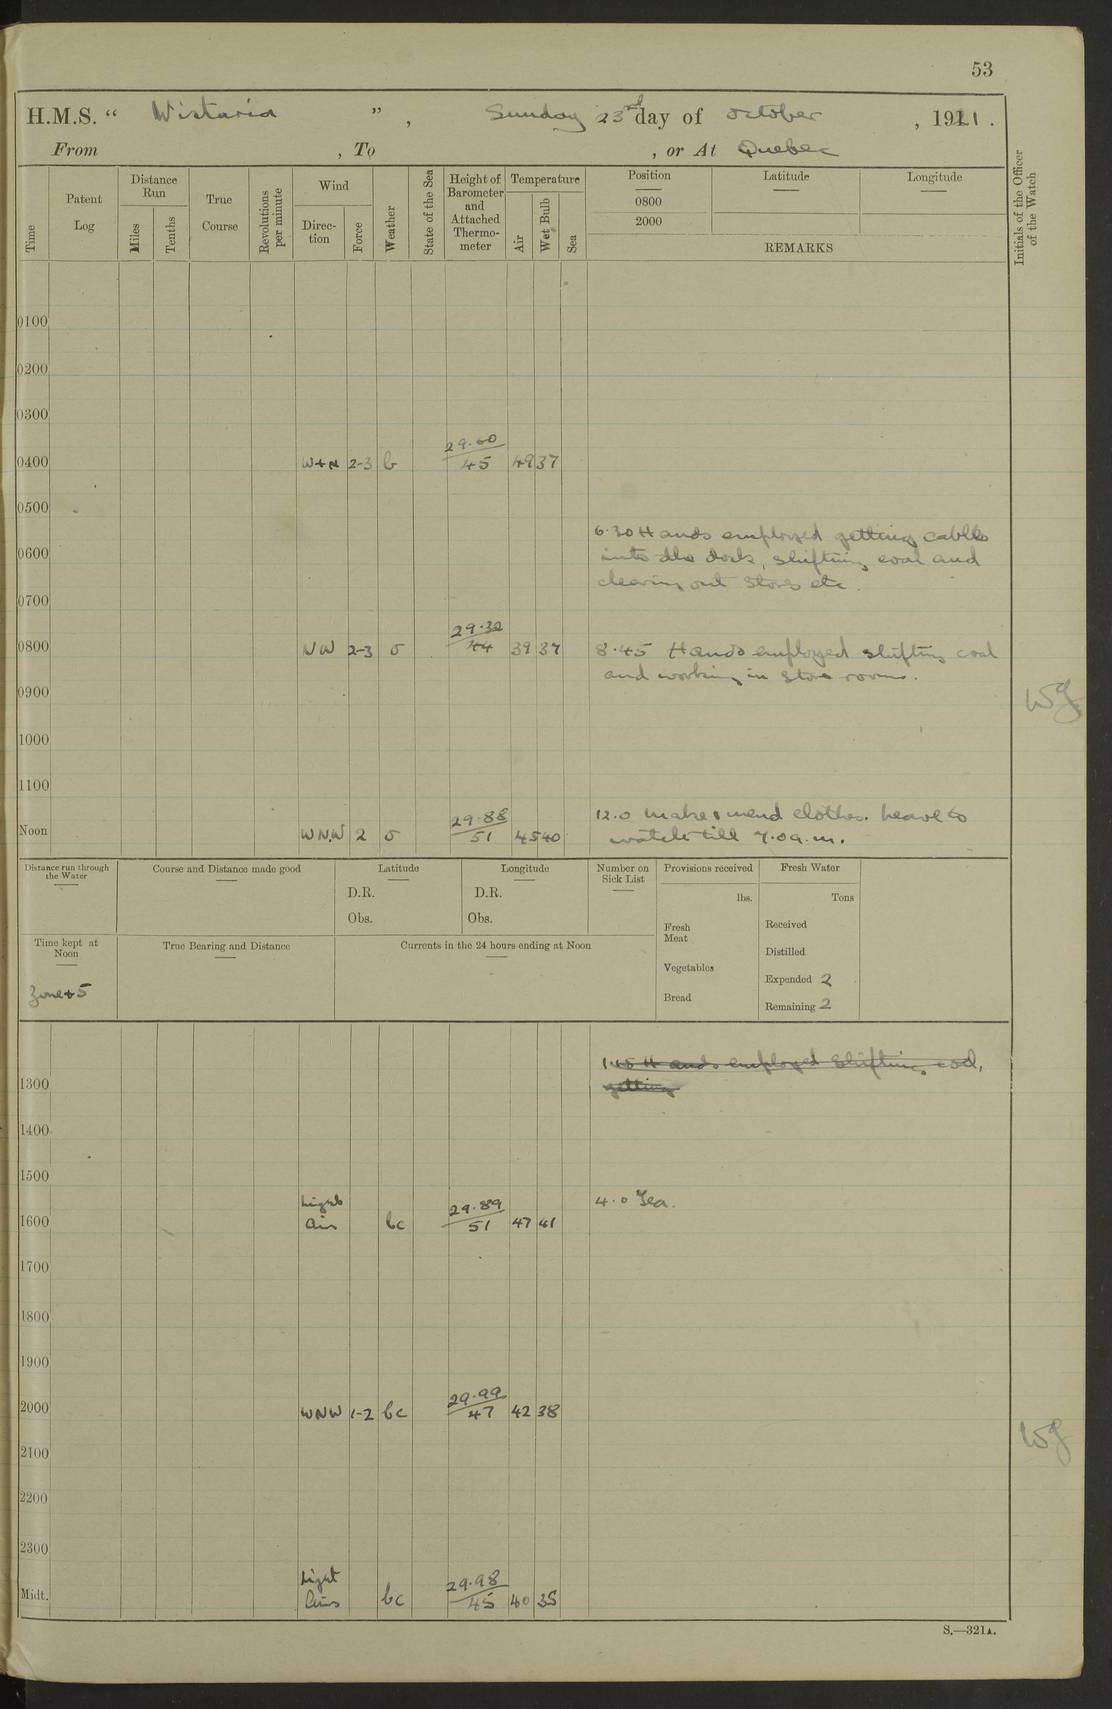 53
H.M.S. “ Wistaria ” , Sunday 23rd day of October , 1921 .
From , To , or At Quebec
Time
Patent Log
Distance Run
Miles
Tenths
True Course
Revolutions per minute
Wind
Direc-tion
Force
Weather
State of the Sea
Height of Barometer and Attached Thermo-meter
Temperature
Air
Wet Bulb
Sea
Position
0800
2000
Latitude
Longitude
REMARKS
Initials of the Officer of the Watch
0100
0200
0300
29.60
0400 W+N 2-3 b 45 49 37
0500
6.30 Hands employed getting cables
0600 into the dock, shifting coal and
clearing out stores etc.
0700
29.32
0800 NW 2-3 o 44 39 37 8.45 Hands employed shifting coal
and working in store rooms.
0900
WJ
1000
1100
29.88 12.0 Make & mend clothes. heave to
Noon WNW 2 o 51 45 40 watch till 7.0 a.m.
Distance run through the Water
Course and Distance made good
Latitude
D.R.
Obs.
Longitude
D.R.
Obs.
Number on Sick List
Provisions received
lbs.
Fresh Meat
Vegetables
Bread
Fresh Water
Tons
Received
Distilled
Expended 2
Remaining 2
Time kept at Noon
Zone+5
True Bearing and Distance
Currents in the 24 hours ending at Noon
1.15 Hands employed shifting coal,
getting
1300
1400
1500
Light 29.89 4.0 Tea.
1600 air bc 51 47 41
1700
1800
1900
29.99
2000 WNW 1-2 bc 47 42 38
WJ
2100
2200
2300
Light 29.98
Midt. airs bc 45 40 35
S.—321A.